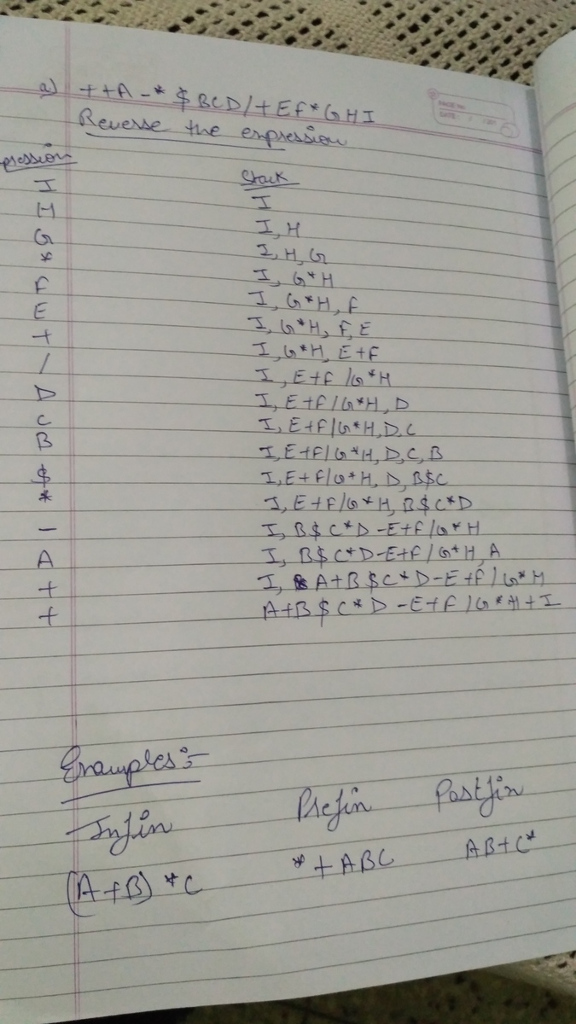 a) ++A-*$BCD/+EF*GHI
Reverse the expression
pression Stack
I I
H I, H
G I, H, G
* I, G*H
F I, G*H, F
E I, G*H, F, E
+ I, G*H, E+F
/ I, E+F/G*H
D I, E+F/G*H, D
C I, E+F/G*H, D, C
B I, E+F/G*H, D, C, B
$ I, E+F/G*H, D, B$C
* I, E+F/G*H, B$C*D
- I, B$C*D-E+F/G*H
A I, B$C*D-E+F/G*H, A
+ I, A+B$C*D-E+F/G*H
+ A+B$C*D-E+F/G*H+I
Examples:-
Infix Prefix Postfix
(A+B)*C *+ABC AB+C*